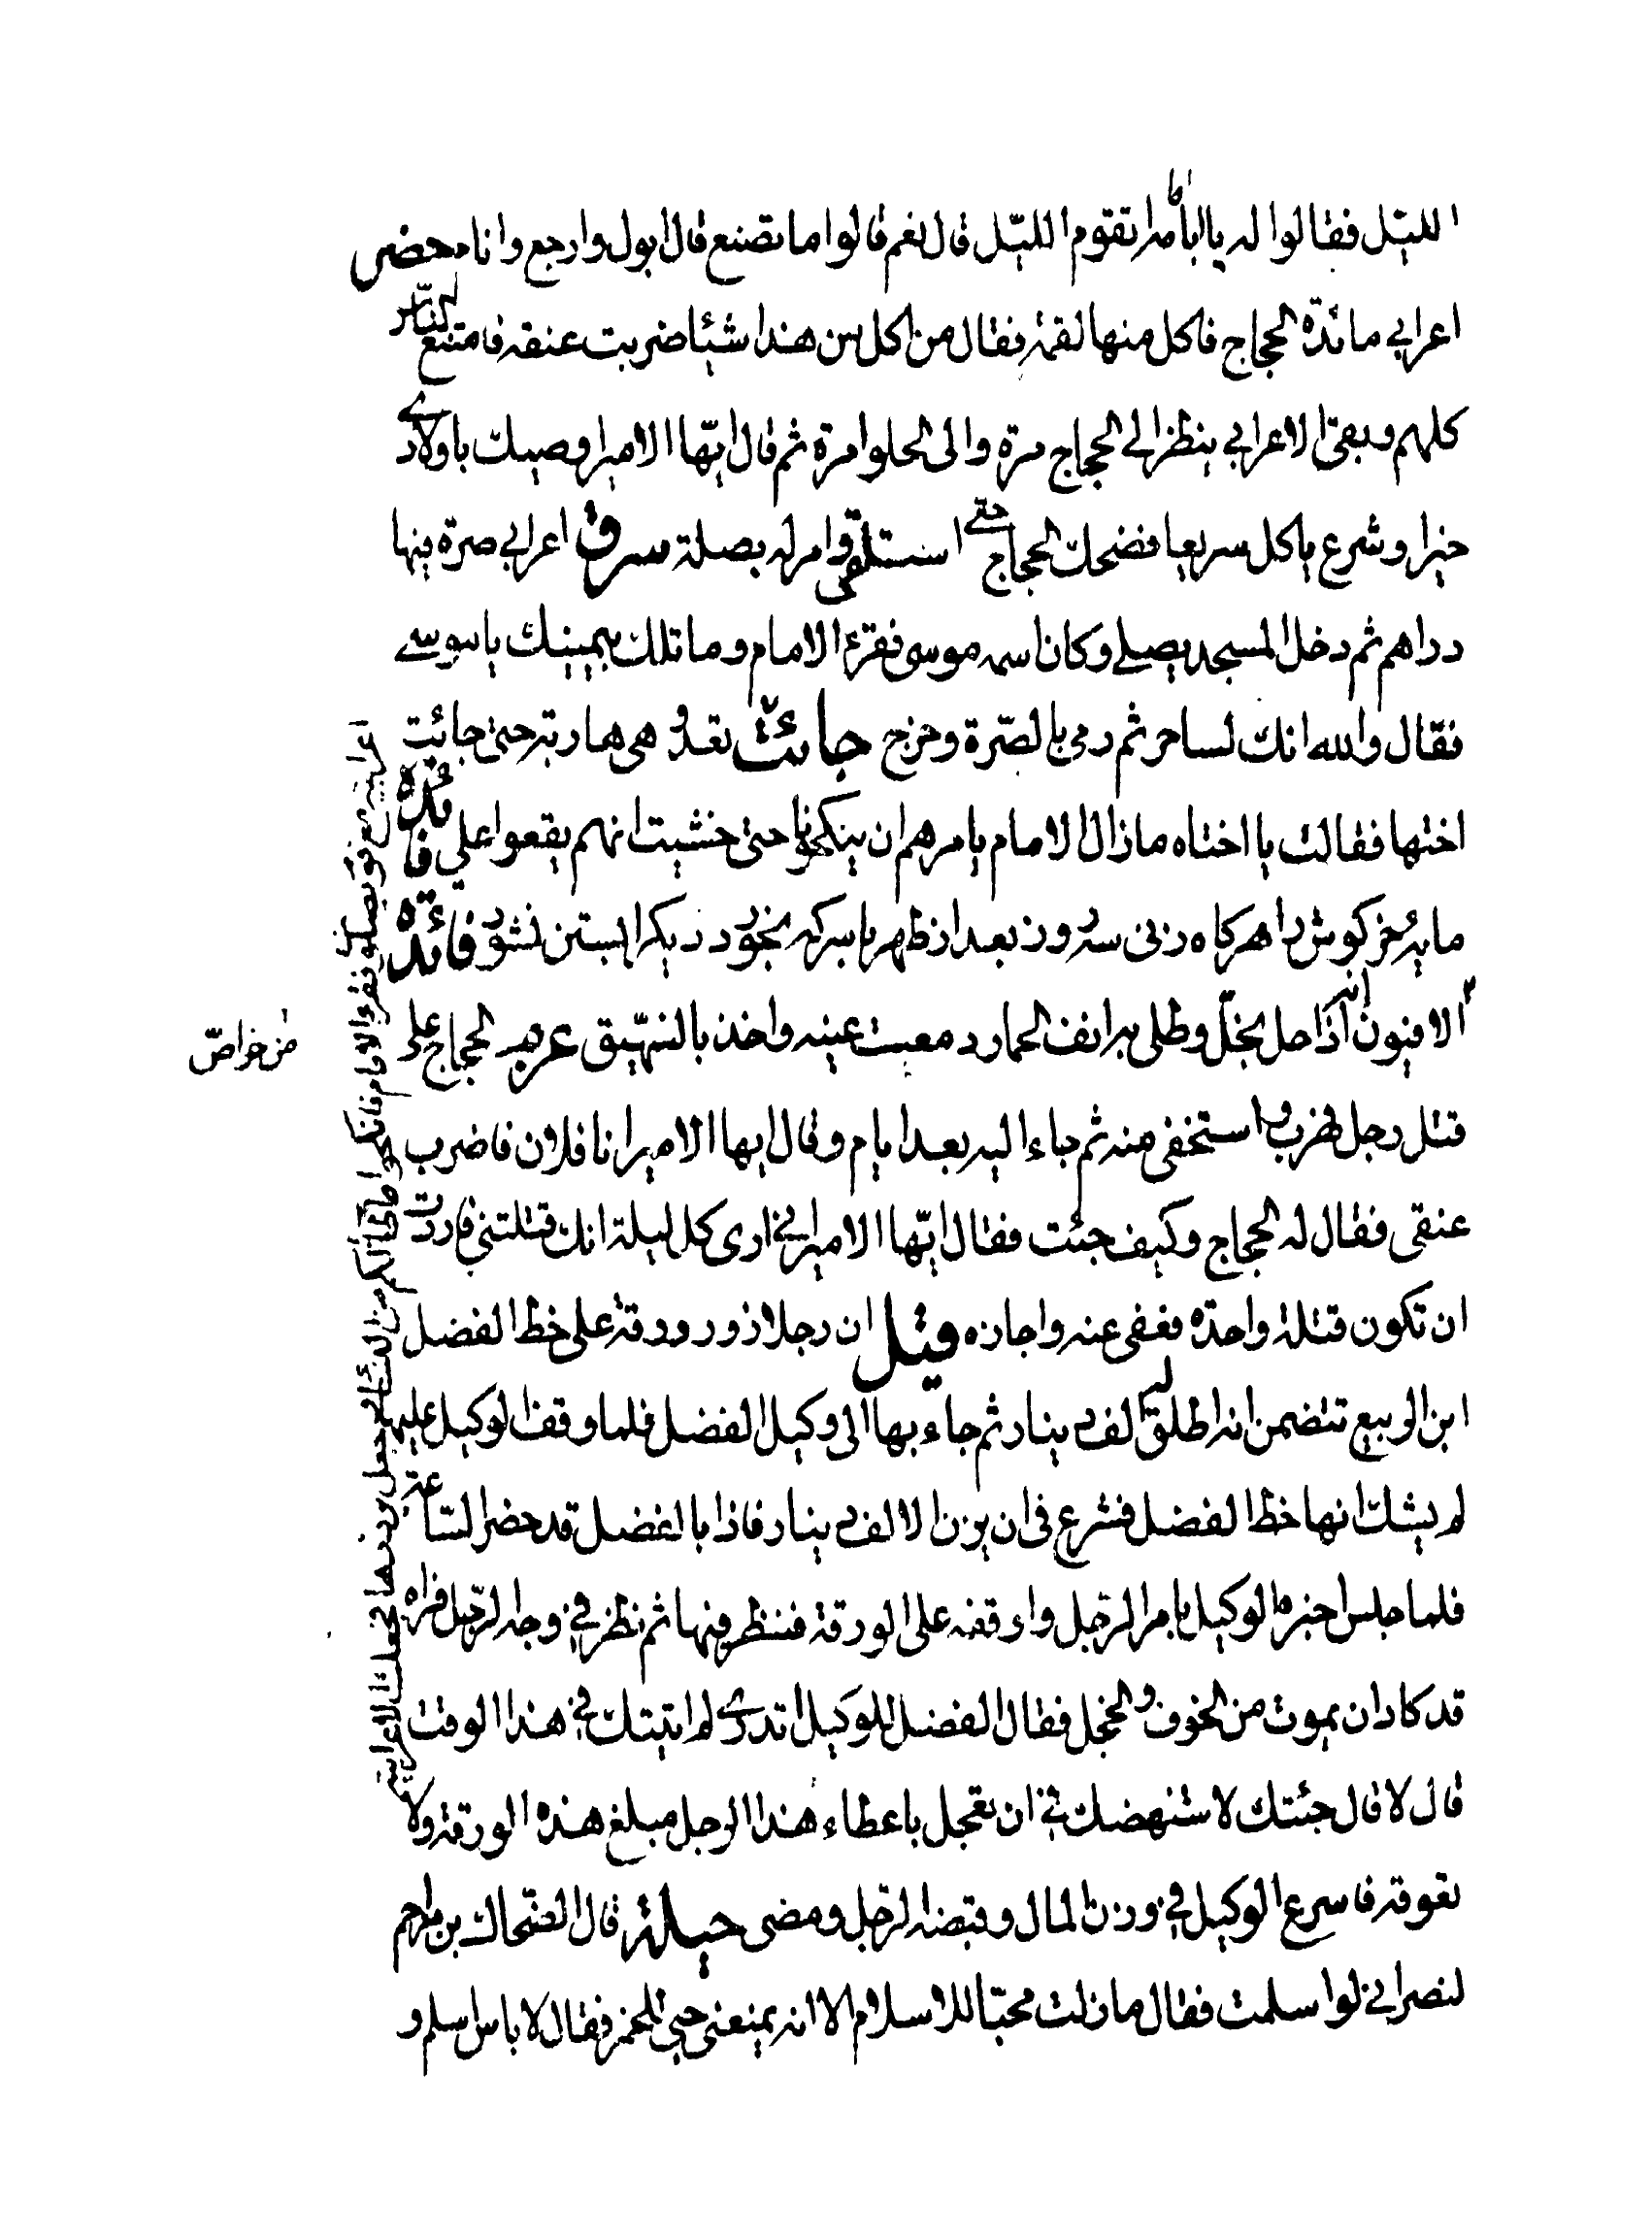 الليّل فقالوا له يا ابا مرا تقوم الليّل قال نعم قالوا ما تصنع قال ابول وارجع وانام حضر
اعرابي مائدة الحجاج فاكل منها لقمة فقال من اكل من هذا شيئا ضربت عنقه فامتنع الناس
كلهم وبقى الاعرابي ينظر الي الحجاج مرة والى الحلوا مرة ثم قال ايّها الامير اوصيك باولادي
خيرا وشرع ياكل سريعا فضحك الحجاج حتى استلقى وامر له بصلة سرق اعرابي صرة فيها
دراهم ثم دخل المسجد يصلي وكان اسمه موسى فقرء الامام وما تلك بيمينك يا موسى
فقال والله انك لساحر ثم رمى بالصّرة وخرج جائت تعدو هي هاربة حتى جائت
اختها فقالت يا اختاه ما زال الامام يامرهم ان ينكحونا حتى خشيت انهم يقعوا علي فائدة
مايه خركوش را هركاه زنى سه روز بعد از طهر با سركه بخورد ديكر ابستن نشود فائدة
الافيون انه اذا حل بخلّ وطلى به انف الحمار دمعت عينه واخذ بالنهّيق عرض الحجاج على
قتل رجل فهرب واستخفى منه ثم جاء اليه بعد ايام وقال ايها الامير انا فلان فاضرب
عنقى فقال له الحجاج وكيف جئت فقال ايّها الامير اني ارى كل ليلة انك قتلتني فاردت
ان تكون قتلة واحدة فعفى عنه واجازه قيل ان رجلا زور ورقة على خط الفضل
ابن الربيع تتضمن انه اطلق له الف دينار ثم جاء بها الى وكيل الفضل فلما وقف الوكيل عليها
لم يشك انها خط الفضل فشرع في ان يزن الالف دينار فاذا بالفضل قد حضر الساعة
فلما جلس اخبره الوكيل بامر الرّجل واوقفه على الورقة فنظر فيها ثم نظر في وجه الرّجل فراه
قد كاد ان يموت من الخوف والخجل فقال الفضل للوكيل اتدري لم اتيتك في هذا الوقت
قال لا قال جئتك لاستنهضك في ان تعجل باعطاء هذا الرجل مبلغ هذه الورقة ولا
تعوقه فاسرع الوكيل في وزن المال وقبضه الرّجل ومضى حيلة قال الضحاك بن مزاحم
لنصراني لو اسلمت فقال ما زلت محبّا للاسلام الا انه يمنعني حبي للخمر فقال لا باس اسلم و
من خواصّ
اعرابية مع قوم يصلّون فقرء الامام فانكحوا ما طاب لكم من النساء وجعل يرددها فجعلت الاعرابية